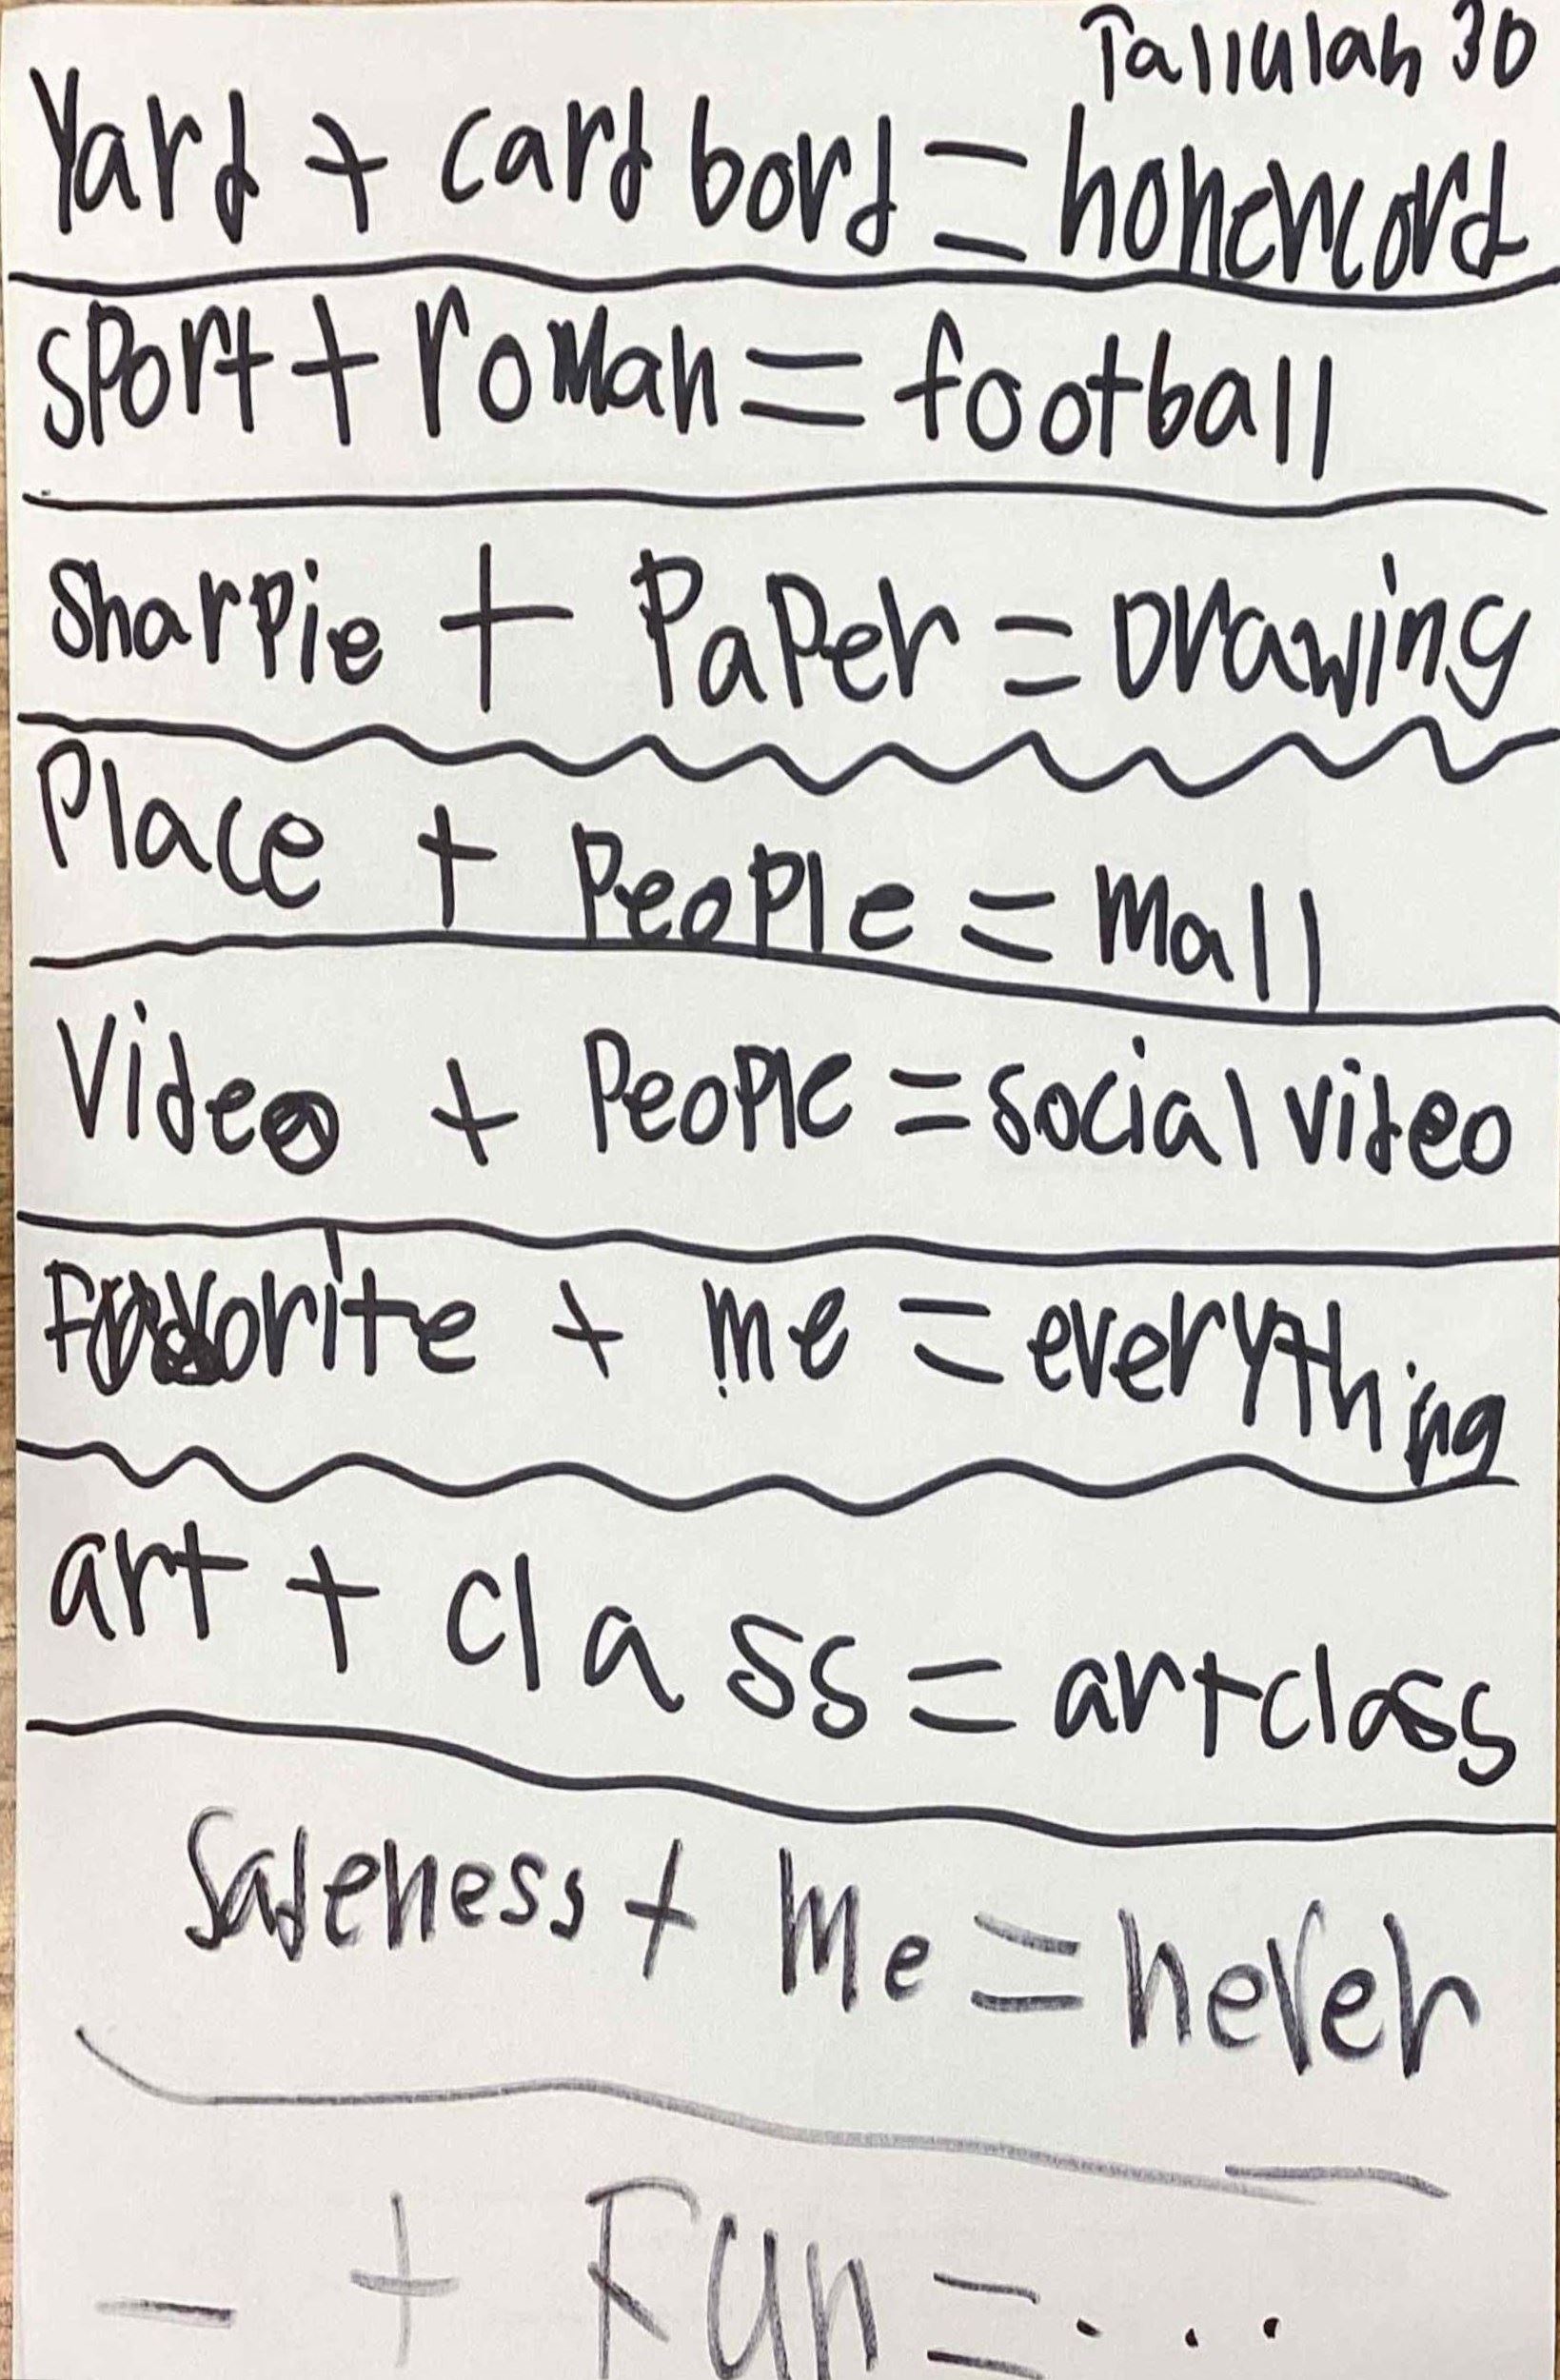 Tallulah 3D
Yard + cardbord = honercord
sport + roman = football
sharpie + Paper = Drawing
Place + People = mall
Video + People = social video
Favorite + me = everything
art + class = artclass
Sadeness + me = never
- + Fun = ...